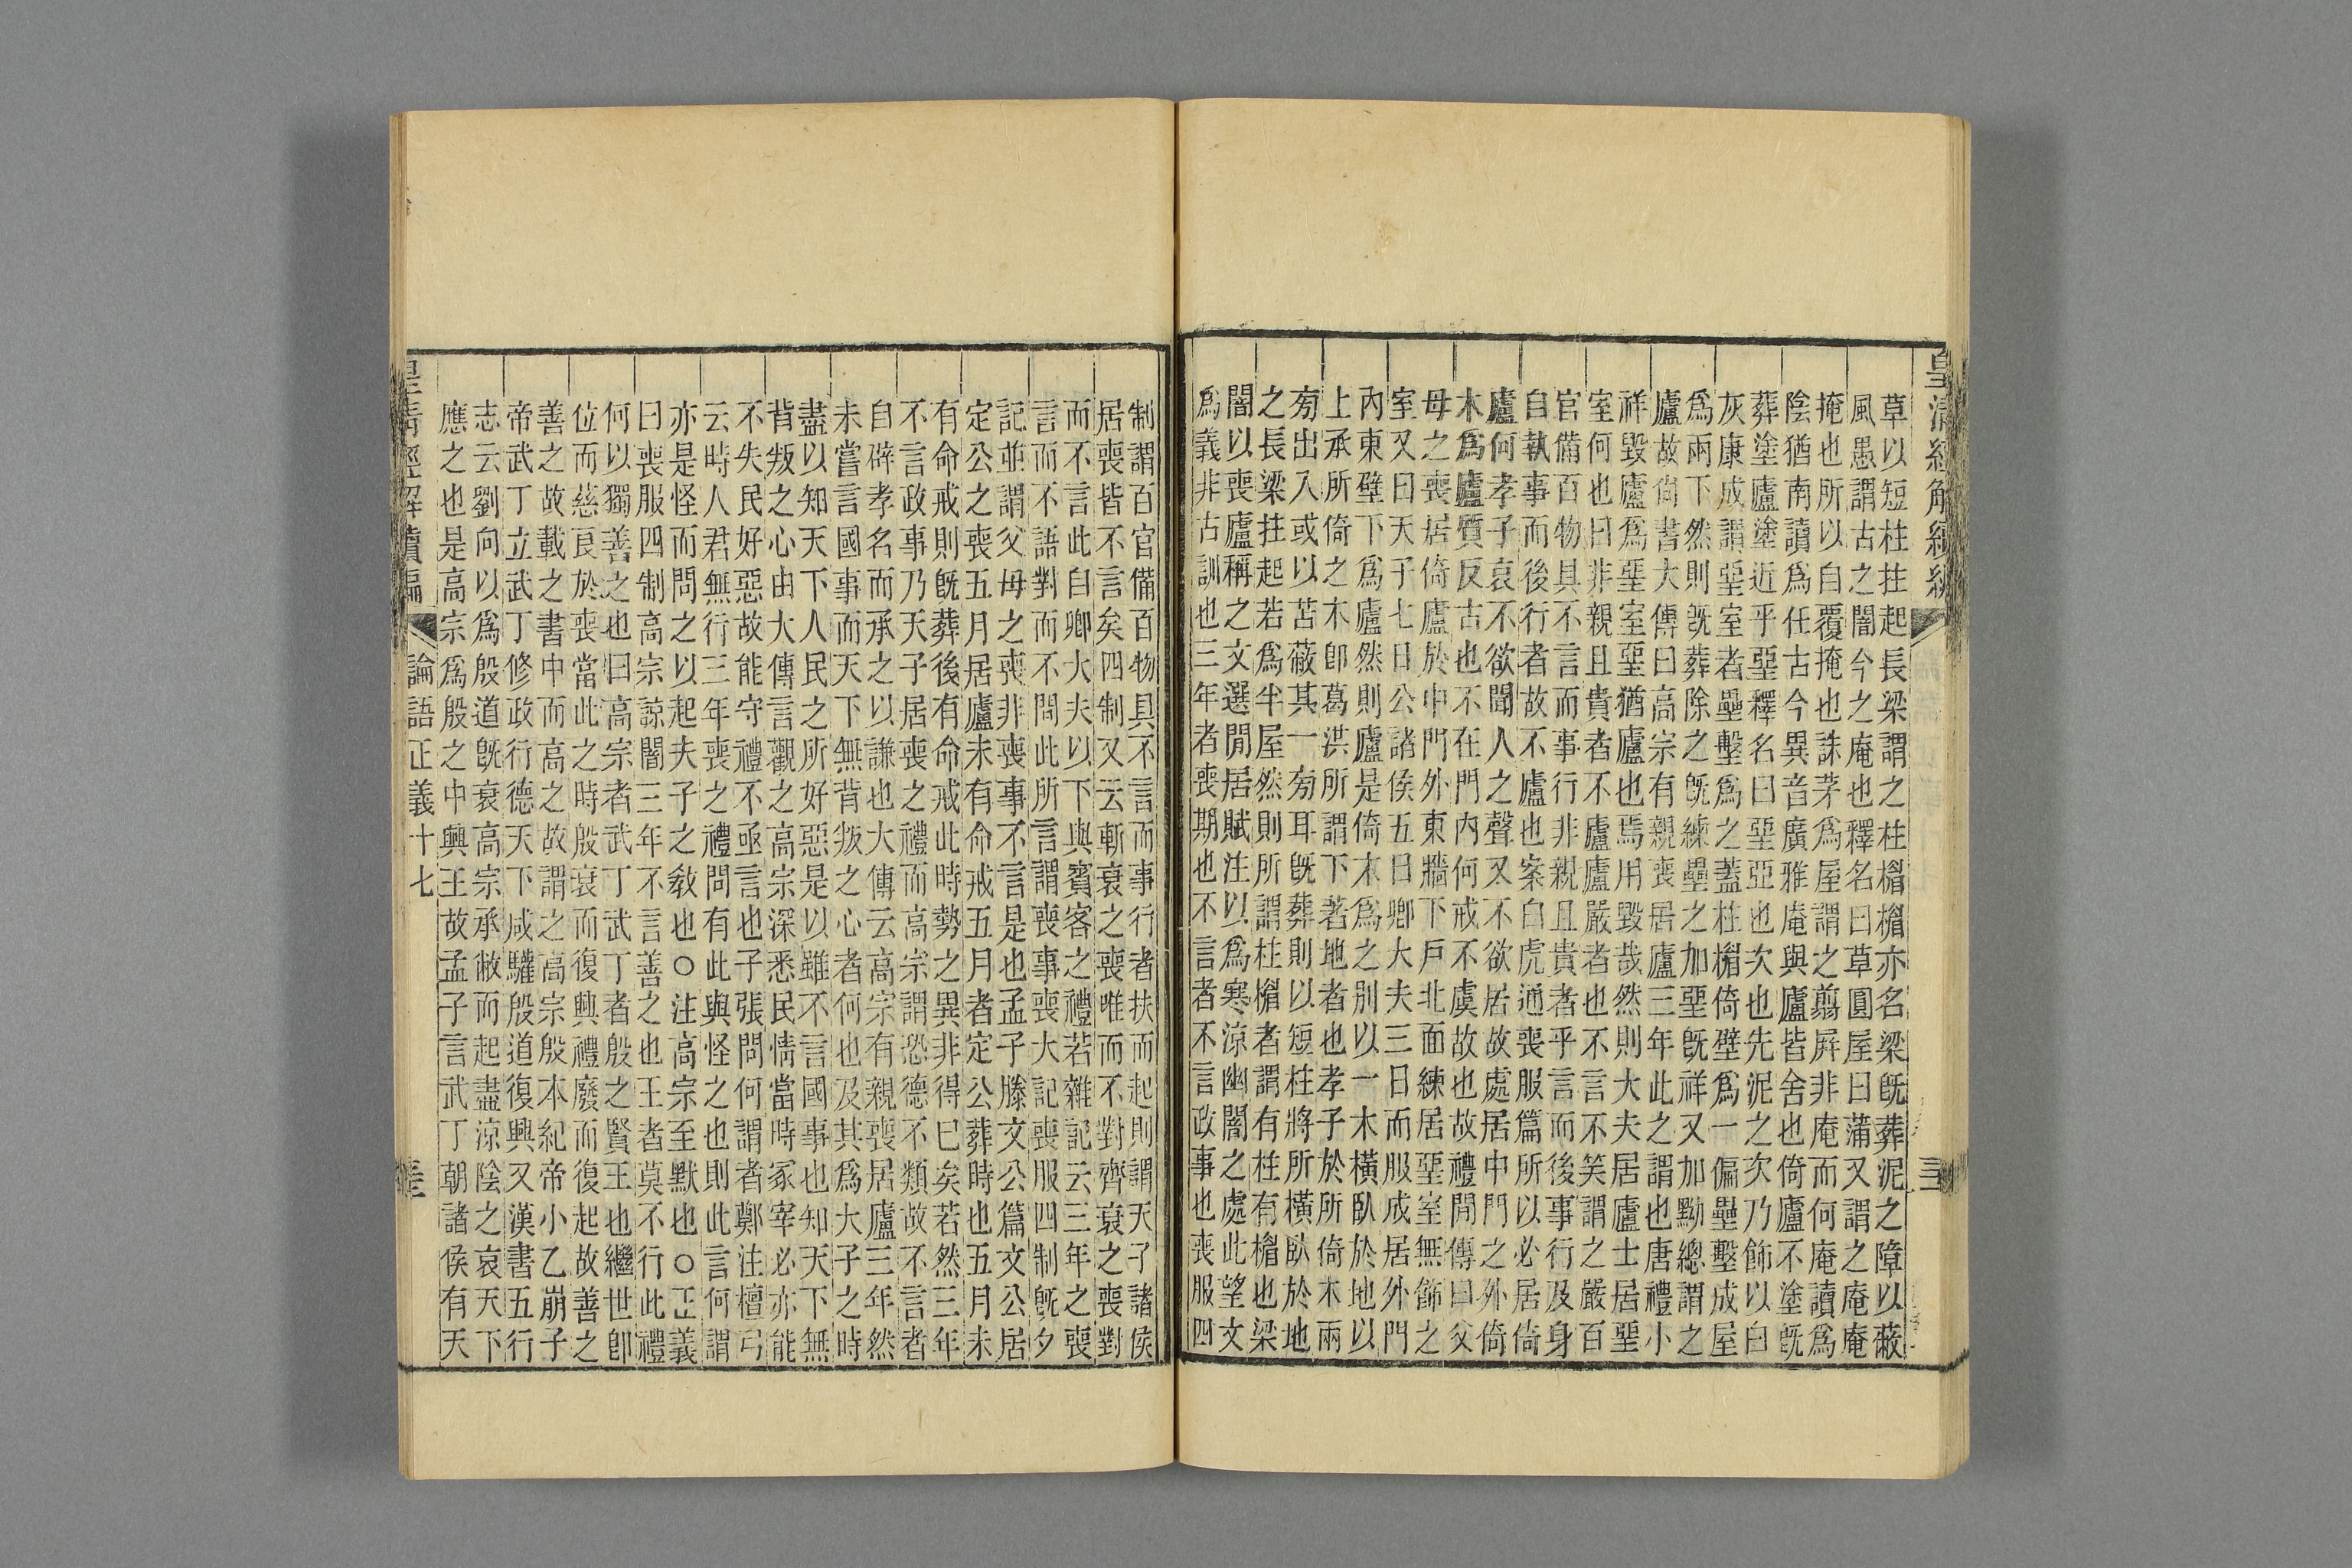 皇清經解續編
草以短柱拄起長梁謂之柱楣楣亦名梁旣葬泥之障以蔽
風愚謂古之闇今之庵也釋名曰草圓屋曰蒲又謂之庵庵
掩也所以自覆掩也誅茅爲屋謂之翦屛非庵而何庵讀爲
陰猶南讀爲任古今異音廣雅庵與廬皆舍也倚廬不塗旣
葬塗廬塗近乎堊釋名曰堊亞也次也先泥之次乃飾以白
灰康成謂堊室者壘墼爲之蓋柱楣倚壁爲一偏壘墼成屋
爲兩下然則旣葬除之旣練壘之加堊旣祥又加黝總謂之
廬故尙書大傳曰高宗有親喪居廬三年此之謂也唐禮小
祥毀廬爲堊室堊猶廬也焉用毀哉然則大夫居廬士居堊
室何也曰非親且貴者不廬廬嚴者也不言不笑謂之嚴百
官備百物具不言而事行非親且貴者乎言而後事行及身
自執事而後行者故不廬也案白虎通喪服篇所以必居倚
廬何孝子哀不欲聞人之聲又不欲居故處居中門之外倚
木爲廬質反古也不在門內何戒不虞故也故禮閒傳曰父
母之喪居倚廬於中門外東牆下戶北面練居堊室無飾之
室又曰天子七日公諸侯五日卿大夫三日而服成居外門
內東壁下爲廬然則廬是倚木爲之別以一木橫臥於地以
上承所倚之木卽葛洪所謂下著地者也孝子於所倚木兩
旁出入或以苫蔽其一旁耳旣葬則以短柱將所橫臥於地
之長梁拄起若爲半屋然則所謂柱楣者謂有柱有楣也梁
闇以喪廬稱之文選閒居賦注以爲寒涼幽闇之處此望文
爲義非古訓也三年者喪期也不言者不言政事也喪服四
制謂百官備百物具不言而事行者扶而起則謂天子諸侯
居喪皆不言矣四制又云斬衰之喪唯而不對齊衰之喪對
而不言此自卿大夫以下與賓客之禮若雜記云三年之喪
言而不語對而不問此所言謂喪事喪大記喪服四制旣夕
記並謂父母之喪非喪事不言是也孟子滕文公篇文公居
定公之喪五月居廬未有命戒五月者定公葬時也五月未
有命戒則旣葬後有命戒此時勢之異非得已矣若然三年
不言政事乃天子居喪之禮而高宗謂恐德不類故不言者
自辟孝名而承之以謙也大傳云高宗有親喪居廬三年然
未嘗言國事而天下無背叛之心者何也及其爲大子之時
盡以知天下人民之所好惡是以雖不言國事也知天下無
背叛之心由大傳言觀之高宗深悉民情當時冢宰必亦能
不失民好惡故能守禮不亟言也子張問何謂者鄭注檀弓
云時人君無行三年喪之禮問有此與怪之也則此言何謂
亦是怪而問之以起夫子之敎也○注高宗至默也○正義
曰喪服四制高宗諒闇三年不言善之也王者莫不行此禮
何以獨善之也曰高宗者武丁武丁者殷之賢王也繼世卽
位而慈良於喪當此之時殷衰而復興禮廢而復起故善之
善之故載之書中而高之故謂之高宗殷本紀帝小乙崩子
帝武丁立武丁修政行德天下咸驩殷道復興又漢書五行
志云劉向以爲殷道旣衰高宗承敝而起盡涼陰之哀天下
應之也是高宗爲殷之中興王故孟子言武丁朝諸侯有天
皇清經解續編 論語正義十七